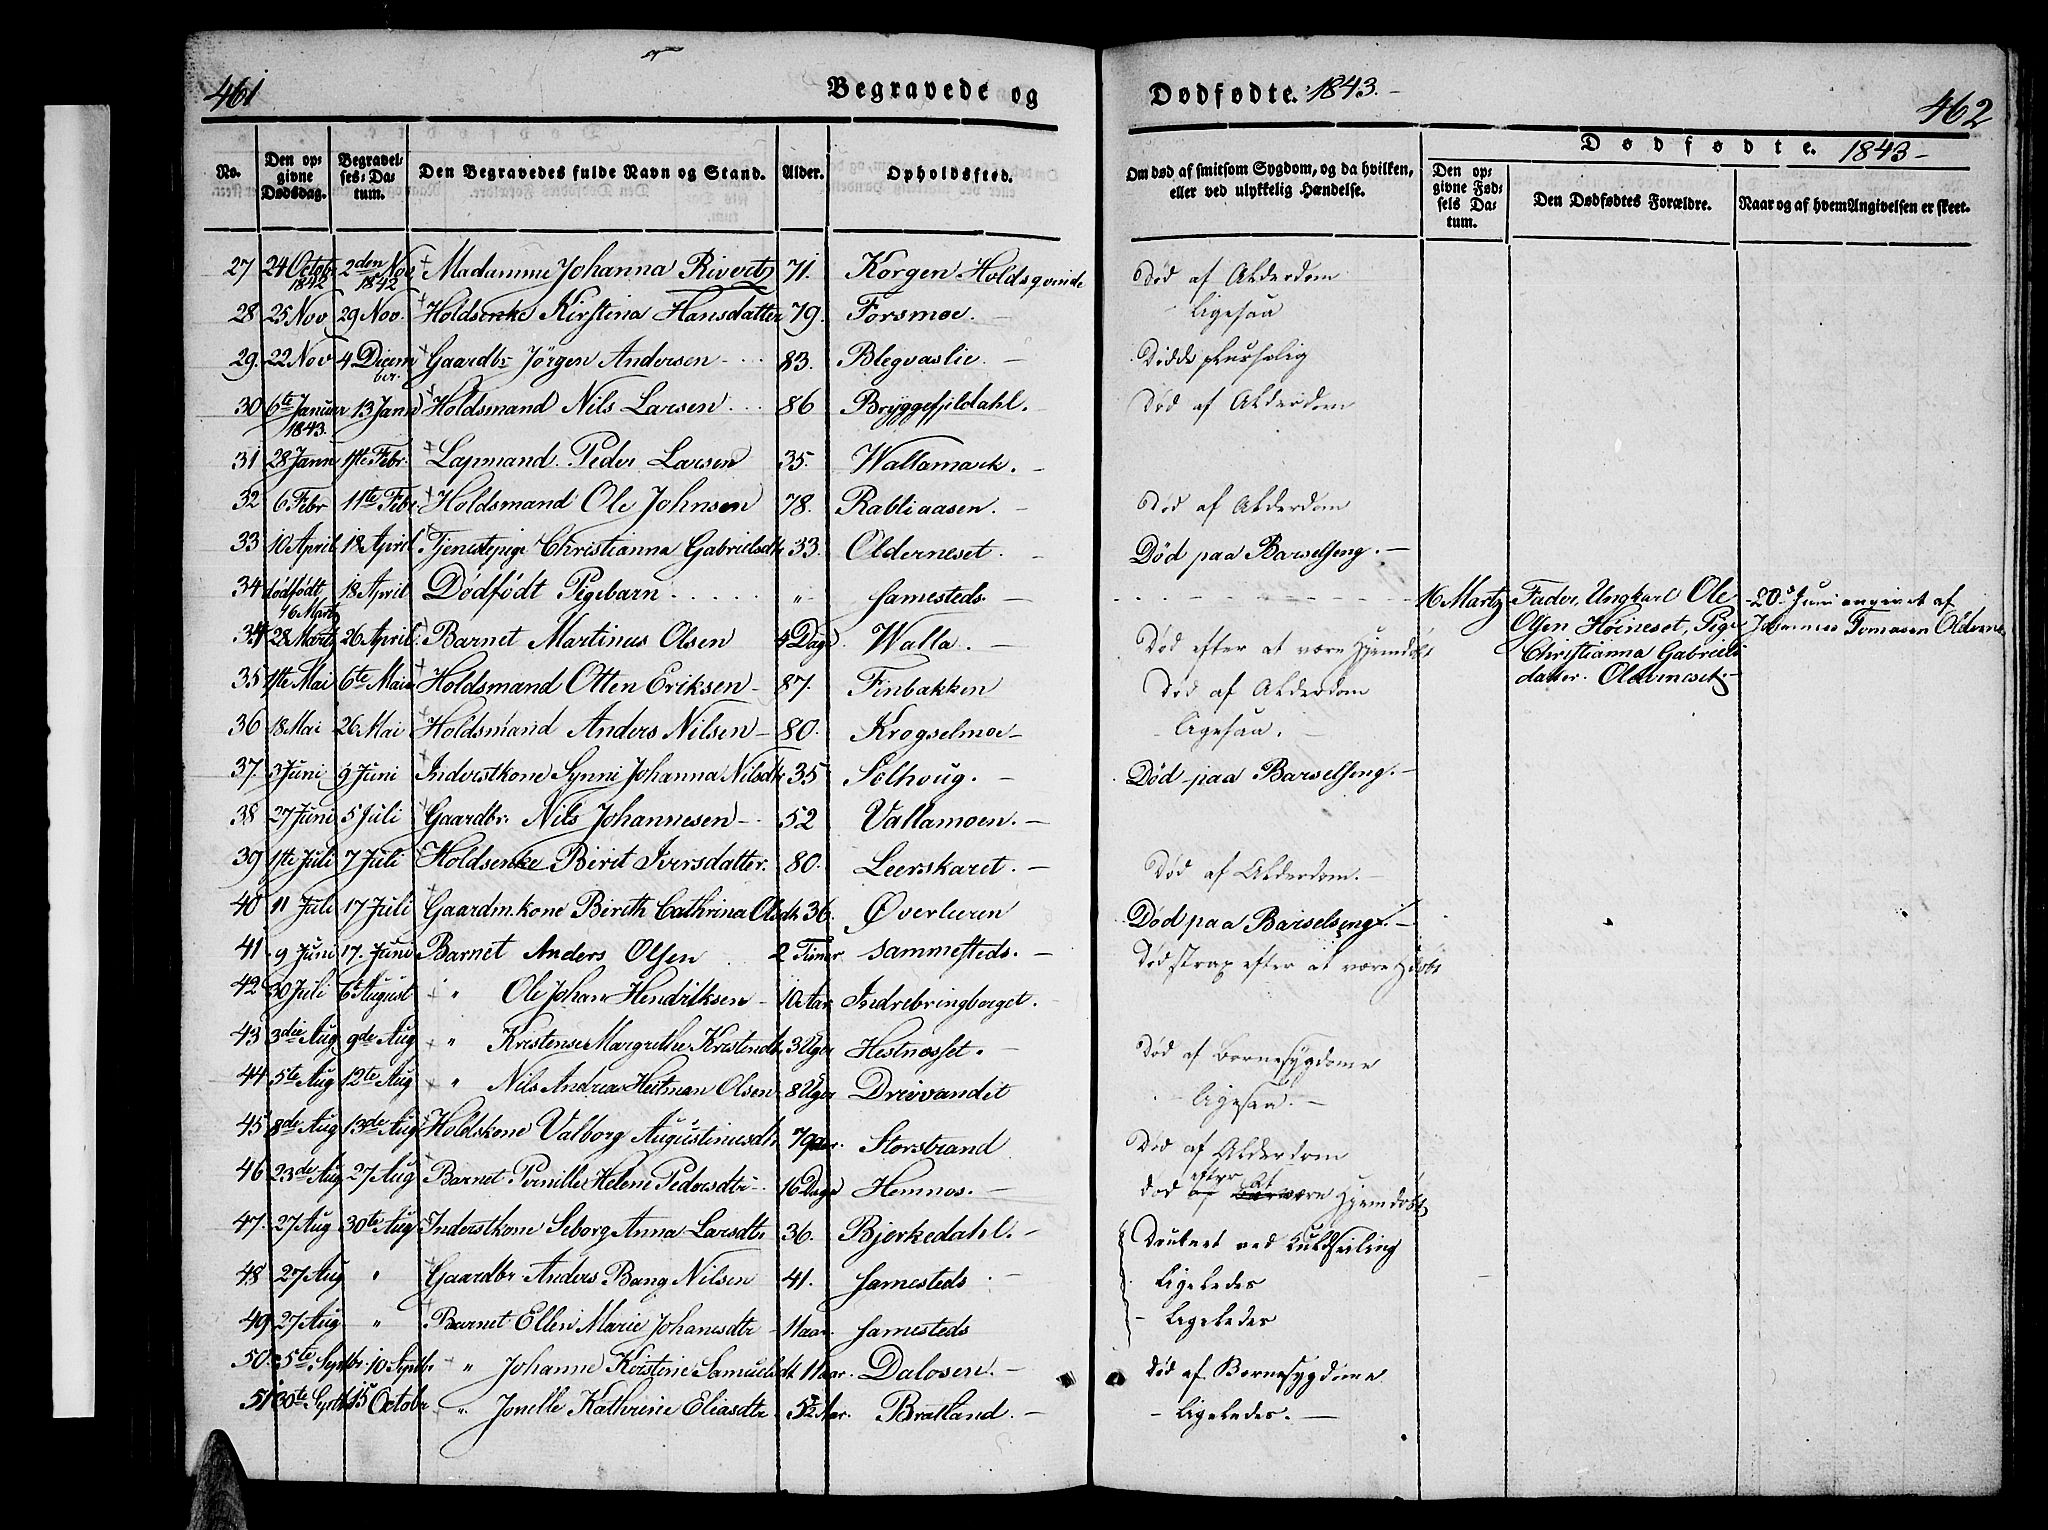 461
Begravede og
Dødfødte. 1843.
462
No.
Den op-
givne
Dødsdag.
Begravel-
ses-Da-
tum.
Den Begravedes fulde Navn og Stand.
Alder.
Opholdssted.
Om død af smitsom Sygdom, og da hvilken,
eller ved ulykkelig Hændelse.
Dødfødte. 1843
Den op-
givne Fød-
sels Da-
tum.
Den Dødfødtes Forældre.
Naar og af hvem Angivelsen er skeet.
27 24 Octob 1842 2den Nov 1842 Madamme Johanna Rivertz 71. Korgen Holdsqvinde Død af Alderdom
28 25 Nov 29 Nov. Holdsenke Kirstina Hansdatter 79. Forsmoe. Ligesaa
29. 22 Nov 4 Decem ber. Gaardbr Jörgen Andersen 83. Blegvaslie.
30 6te Januar 1843. 13 Jann Holdsmand Nils Larsen 86 Bryggefjeldahl. Død af Alderdom
31 28 Jann 1ste Febr. Lapmand Peder Larsen 35. Wallamark.
32 6 Febr 11te Febr Holdsmand Ole Johnsen 78. Rabliaasen. Død af Alderdom
33 10 April 18 April Tjenestepige Christianna Gabrielsdtr 33. Olderneset. Død paa Barselseng.
34 dödfödt 16 Martz 18 April Dödfödt Pigebarn " Samesteds. 16 Martz Fader, Ungkarl Ole Olsen Höineset, Pige Christianna Gabriels datter. Olderneset. 20. Juni angivet af Johannes Tomasen Olderne
34 28 Martz 26 April Barnet Martinus Olsen 4 Dage Walla. Død efter at være Hjemdøbt
35 1ste Mai 6te Mai Holdsmand Otten Eriksen 87. Finbakken Død af Alderdom
36 18 Mai 26 Mai Holdsmand Anders Nilsen 80. Krogselmoe Ligesaa.
37. 3 Juni 9 Juni Inderstkone Synni Johanna Nilsdtr 35 Solhoug. Død paa Barselseng.
38 27 Juni 5 Juli Gaardbr. Nils Johannesen 52 Vallamoen.
39 1ste Juli 7 Juli Holdsenke Berit Iversdatter. 80. Leerskaret. Død af Alderdom.
40 11 Juli 17 Juli Gaardm.kone Bereth Cathrina Olsdtr 36. Øverleeren Død paa Barselseng.
41 9 Juni 17. Juni Barnet Anders Olsen 2 Timer Sammesteds. Død strax efter at være Hjdøbt
42 30 Juli 6t August " Ole Johan Hendriksen 10 Aar. Indrebringborget.
43 3die Aug 9de Aug " Kristense Margrethe Kristendtr 3 Uger Hestnæsset. Død af Børnesygdome
44 5te Aug 12te Aug " Nils Andrea Heitman Olsen 8 Uger Drevvandet Ligesaa.
45 8de Aug 13de Aug Holdskone Valborg Augustinusdtr 79 aar. Storstrand Død af Alderdom
46 23de Aug 27 Aug Barnet Pernille Helene Pedersdtr 16 Dage Hemnæs. død efter at være Hjemdøbt
47. 27 Aug 30te Aug Inderstkone Seborg Anna Larsdtr 36. Bjerkedahl. Druknet ved Kuldseiling
48 27 Aug " Gaardbr Anders Bang Nilsen 41. Samesteds Ligeledes
49 27 Aug " Barnet Ellen Marie Johanesdtr 11 aar. Samesteds Ligeledes
50. 5te Septbr. 10 Septbr " Johanne Kirstine Samuelsdt 11 aar. Dalosen. Død af Børnesygdome
51 30te Septb 15 Octobr " Jonelle Kathrine Eliasdtr 5½ Aar. Bratland. Ligeledes.